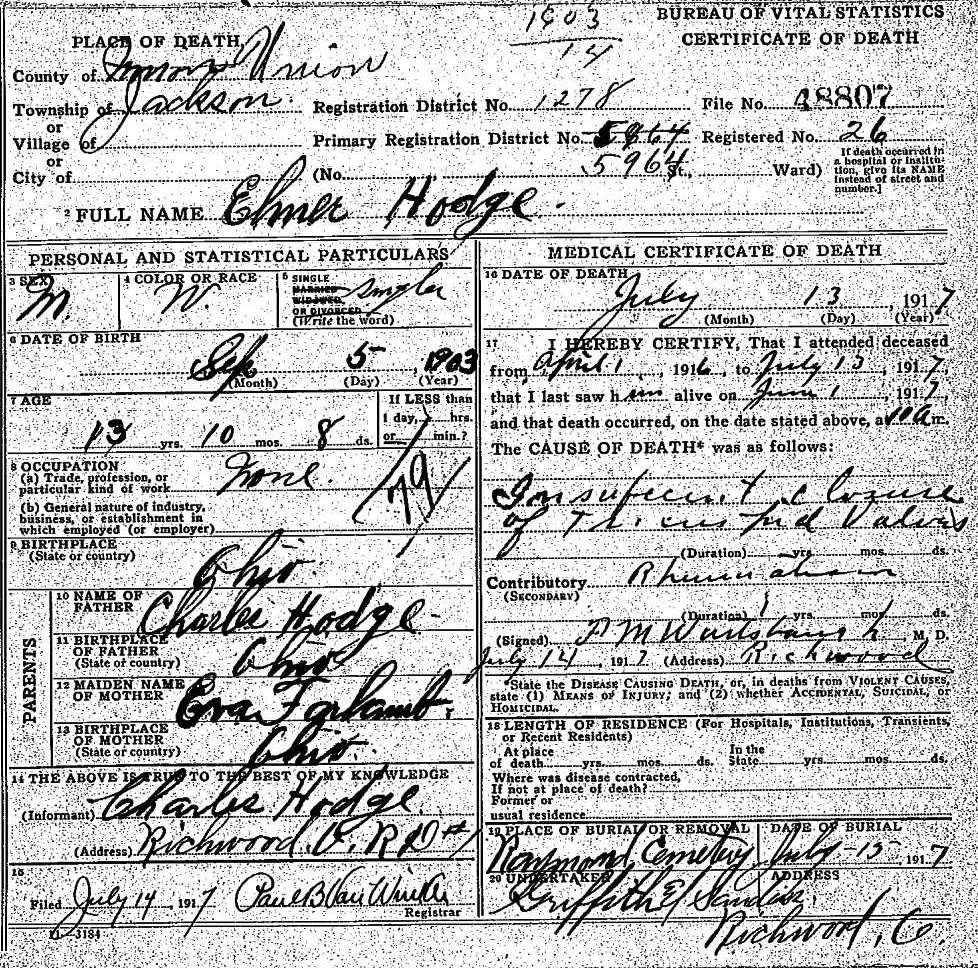 1903
14
BUREAU OF VITAL STATISTICS
CERTIFICATE OF DEATH
PLACE OF DEATH
County of Union
Township of Jackson. Registration District No. 1278 File No. 48807
or
Village of Primary Registration District No. 5964 Registered No. 26
or
City of (No. 5964 St., Ward) If death occurred in a hospital or institution, give its NAME instead of street and number.]
2 FULL NAME Elmer Hodge.
PERSONAL AND STATISTICAL PARTICULARS
3 SEX M. 4 COLOR OR RACE W. 5 SINGLE MARRIED WIDOWED OR DIVORCED (Write the word)
6 DATE OF BIRTH
Sep 5, 1903
(Month) (Day) (Year)
7 AGE If LESS than
1 day, hrs.
13 yrs. 10 mos. 8 ds. or min.?
8 OCCUPATION
(a) Trade, profession, or
particular kind of work None.
79
(b) General nature of industry,
business, or establishment in
which employed (or employer)
9 BIRTHPLACE
(State or country) Ohio.
PARENTS
10 NAME OF
FATHER Charles Hodge
11 BIRTHPLACE
OF FATHER
(State or country) Ohio
12 MAIDEN NAME
OF MOTHER Eva
13 BIRTHPLACE
OF MOTHER
(State or country) Ohio.
14 THE ABOVE IS TRUE TO THE BEST OF MY KNOWLEDGE
(Informant) Charles Hodge
(Address) Richwood. O. R D #1
15
Filed July 14, 1917 Paul B Van Winkle
Registrar
11-3184
MEDICAL CERTIFICATE OF DEATH
16 DATE OF DEATH
July 13, 1917
(Month) (Day) (Year)
17 I HEREBY CERTIFY, That I attended deceased
from April 1, 1916, to July 13, 1917,
that I last saw him alive on June 1, 1917
and that death occurred, on the date stated above, at 10 a m.
The CAUSE OF DEATH* was as follows:
Insuficient closure
of Valves
(Duration) yrs. mos. ds.
Contributory Rheumatism
(SECONDARY)
(Duration) 1 yrs. mos. ds.
(Signed) P M , M. D.
July 14, 1917 (Address) Richwood
*State the DISEASE CAUSING DEATH, or, in deaths from VIOLENT CAUSES,
state (1) MEANS OF INJURY; and (2) whether ACCIDENTAL, SUICIDAL, or
HOMICIDAL.
18 LENGTH OF RESIDENCE (For Hospitals, Institutions, Transients,
or Recent Residents)
At place In the
of death yrs. mos. ds. State yrs. mos. ds.
Where was disease contracted,
If not at place of death?
Former or
usual residence
19 PLACE OF BURIAL OR REMOVAL DATE OF BURIAL
Raymond Cemetery July 15 1917
20 UNDERTAKER ADDRESS
Griffith &
Richwood, O.